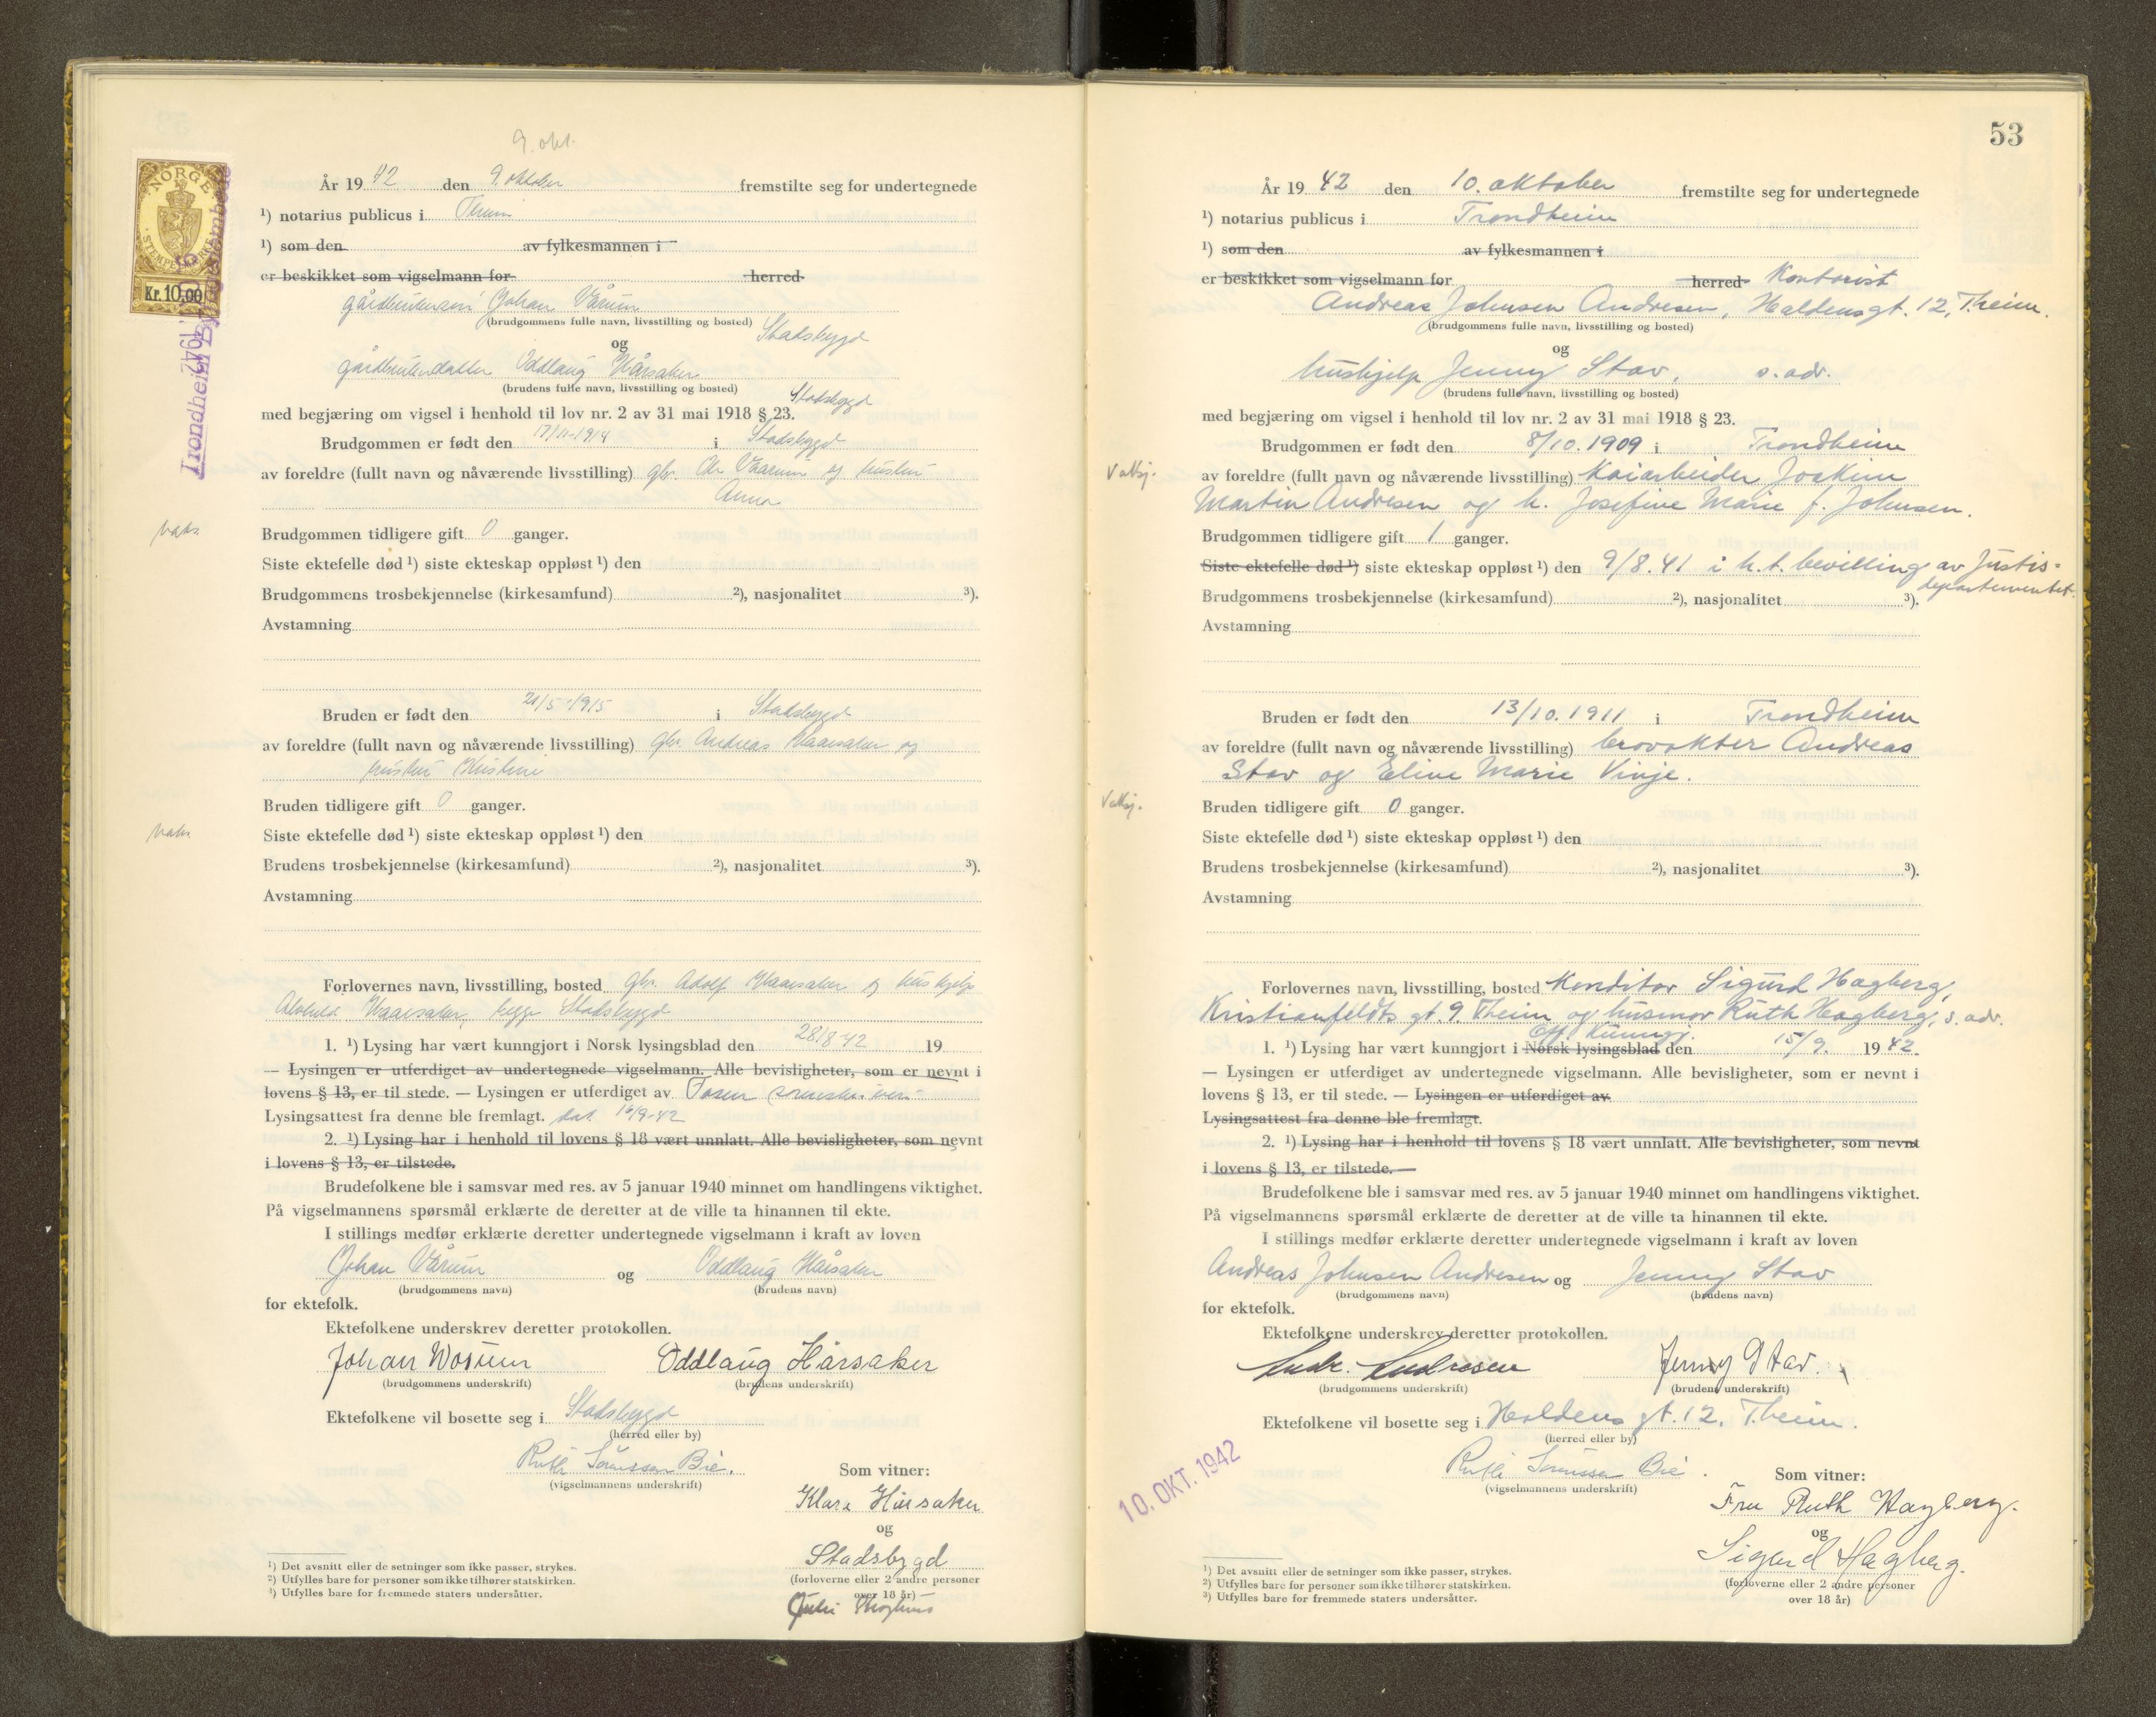 9. okt.
NORGE
STEMPELMERKE
Kr. 10,00
År 1942 den 9. oktober fremstilte seg for undertegnede
¹) notarius publicus i Theim
¹) som den av fylkesmannen i
er beskikket som vigselmann for herred
Johan Vårum
(brudgommens fulle navn, livsstilling og bosted) Stadsbygd
og
Oddlaug Hårsaker
(brudens fulle navn, livsstilling og bosted)
Stadsbygd
med begjæring om vigsel i henhold til lov nr. 2 av 31 mai 1918 § 23.
Brudgommen er født den 17/11-1914 i Stadsbygd
av foreldre (fullt navn og nåværende livsstilling) gbr. Ole Vaarum og hustru
Anna
vaks.
Brudgommen tidligere gift 0 ganger.
Siste ektefelle død ¹) siste ekteskap oppløst ¹) den
Brudgommens trosbekjennelse (kirkesamfund) ²), nasjonalitet ³).
Avstamning
Bruden er født den 21/5-1915 i Stadsbygd
av foreldre (fullt navn og nåværende livsstilling) gbr. Andreas Haarsaker og
hustru Kristine
Bruden tidligere gift 0 ganger.
vaks.
Siste ektefelle død ¹) siste ekteskap oppløst ¹) den
Brudens trosbekjennelse (kirkesamfund) ²), nasjonalitet ³).
Avstamning
Forlovernes navn, livsstilling, bosted gbr. Adolf Haarsaker og hushjelp
Haarsaker, begge Stadsbygd
1. ¹) Lysing har vært kunngjort i Norsk lysingsblad den 28/8-42 19
— Lysingen er utferdiget av undertegnede vigselmann. Alle bevisligheter, som er nevnt i
lovens § 13, er til stede. — Lysingen er utferdiget av Fosen sorenskriveri
Lysingsattest fra denne ble fremlagt. dat. 16/9-42
2. ¹) Lysing har i henhold til lovens § 18 vært unnlatt. Alle bevisligheter, som nevnt
i lovens § 13, er tilstede.
Brudefolkene ble i samsvar med res. av 5 januar 1940 minnet om handlingens viktighet.
På vigselmannens spørsmål erklærte de deretter at de ville ta hinannen til ekte.
I stillings medfør erklærte deretter undertegnede vigselmann i kraft av loven
Johan Vårum og Oddlaug Hårsaker
(brudgommens navn) (brudens navn)
for ektefolk.
Ektefolkene underskrev deretter protokollen.
Johan Worum Oddlaug Hårsaker
(brudgommens underskrift) (brudens underskrift)
Ektefolkene vil bosette seg i Stadsbygd
(herred eller by)
Ruth Sørenssen Bie.
(vigselmannens underskrift)
Som vitner:
Klara Hårsaker
og
Stadsbygd
(forloverne eller 2 andre personer
over 18 år)
¹) Det avsnitt eller de setninger som ikke passer, strykes.
²) Utfylles bare for personer som ikke tilhører statskirken.
³) Utfylles bare for fremmede staters undersåtter.
53
År 1942 den 10. oktober fremstilte seg for undertegnede
¹) notarius publicus i Trondheim
¹) som den av fylkesmannen i
er beskikket som vigselmann for herred Kontorist
Andreas Johnsen Andresen, Haldensgt. 12, Theim.
(brudgommens fulle navn, livsstilling og bosted)
og
hushjelp Jenny Stav, s. adr.
(brudens fulle navn, livsstilling og bosted)
med begjæring om vigsel i henhold til lov nr. 2 av 31 mai 1918 § 23.
Brudgommen er født den 8/10.1909 i Trondheim
av foreldre (fullt navn og nåværende livsstilling) Kaiarbeider Joakim
Martin Andresen og h. Josefine Marie f. Johnsen.
Brudgommen tidligere gift 1 ganger.
Siste ektefelle død ¹) siste ekteskap oppløst ¹) den 9/8.41 i h.t. bevilling av Justis-
departementet.
Brudgommens trosbekjennelse (kirkesamfund) ²), nasjonalitet ³).
Avstamning
Bruden er født den 13/10.1911 i Trondheim
av foreldre (fullt navn og nåværende livsstilling) brovokter Andreas
Stav og Eline Marie Vinje.
Bruden tidligere gift 0 ganger.
Siste ektefelle død ¹) siste ekteskap oppløst ¹) den
Brudens trosbekjennelse (kirkesamfund) ²), nasjonalitet ³).
Avstamning
Forlovernes navn, livsstilling, bosted Konditor Sigurd Hagberg,
Kristianfeldts gt. 9. Theim og husmor Ruth Hagberg, s. adr.
off. kunngj.
1. ¹) Lysing har vært kunngjort i Norsk lysingsblad den 15/9. 1942.
— Lysingen er utferdiget av undertegnede vigselmann. Alle bevisligheter, som er nevnt i
lovens § 13, er til stede. — Lysingen er utferdiget av
Lysingsattest fra denne ble fremlagt.
2. ¹) Lysing har i henhold til lovens § 18 vært unnlatt. Alle bevisligheter, som nevnt
i lovens § 13, er tilstede. —
Brudefolkene ble i samsvar med res. av 5 januar 1940 minnet om handlingens viktighet.
På vigselmannens spørsmål erklærte de deretter at de ville ta hinannen til ekte.
I stillings medfør erklærte deretter undertegnede vigselmann i kraft av loven
Andreas Johnsen Andresen og Jenny Stav
(brudgommens navn) (brudens navn)
for ektefolk.
Ektefolkene underskrev deretter protokollen.
Andr. Andresen Jenny Stav.
(brudgommens underskrift) (brudens underskrift)
Ektefolkene vil bosette seg i Haldens gt. 12. Theim.
(herred eller by)
10. OKT. 1942
Ruth Sørenssen Bie.
(vigselmannens underskrift)
Som vitner:
Fru Ruth Hagberg.
og
Sigurd Hagberg.
(forloverne eller 2 andre personer
over 18 år)
¹) Det avsnitt eller de setninger som ikke passer, strykes.
²) Utfylles bare for personer som ikke tilhører statskirken.
³) Utfylles bare for fremmede staters undersåtter.